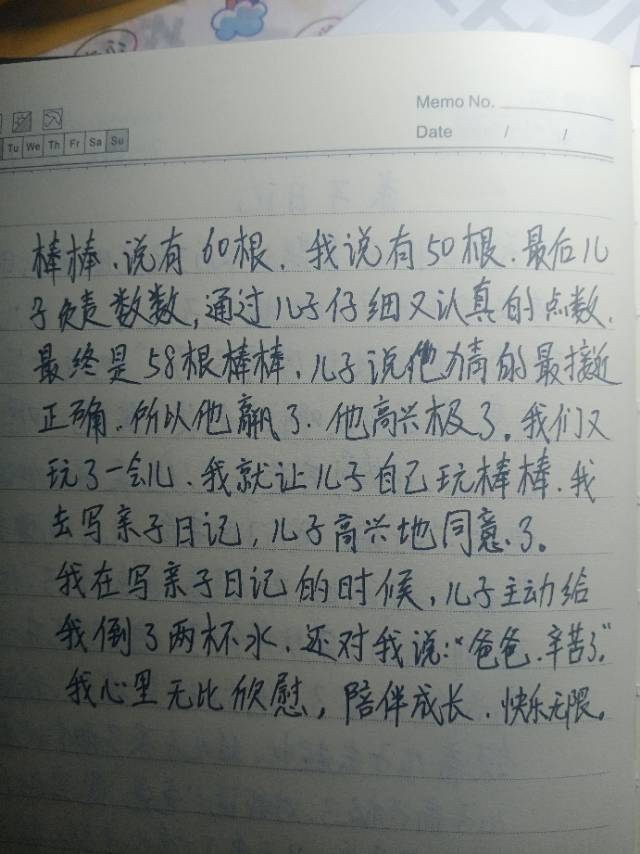 Memo No.
Tu We Th Fr Sa Su
Date / /
棒棒,说有60根,我说有50根,最后儿
子负责数数,通过儿子仔细又认真的点数,
最终是58根棒棒,儿子说他猜的最接近
正确,所以他赢了,他高兴极了。我们又
玩了一会儿,我就让儿子自己玩棒棒,我
去写亲子日记,儿子高兴地同意了。
我在写亲子日记的时候,儿子主动给
我倒了两杯水,还对我说:“爸爸,辛苦了。”
我心里无比欣慰,陪伴成长,快乐无限。